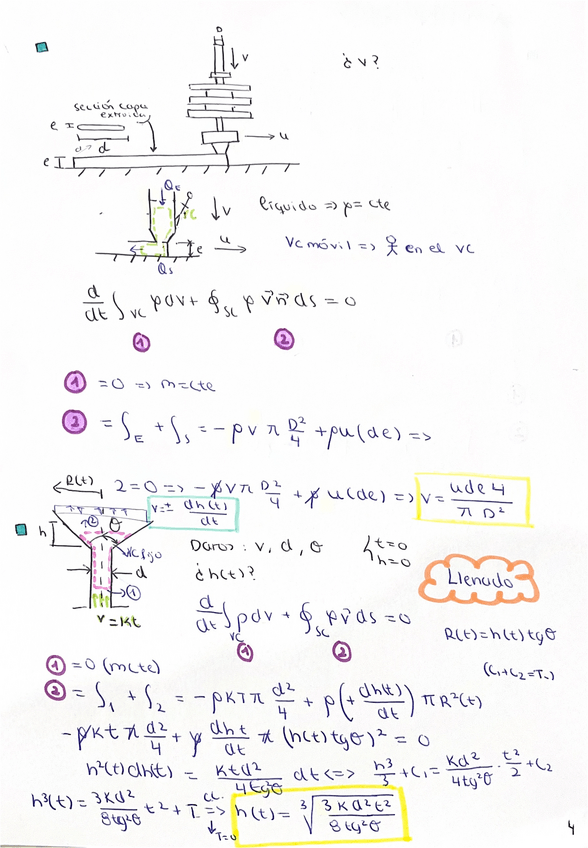 D
↓v
¿v?
sección capa
extruida
e
d
→ u
e
QE
D
VC
↓v
líquido => ρ = cte
e
u
VC móvil => en el VC
Qs
d/dt ∫VC ρdv + ∮SC ρ v⃗ n⃗ ds = 0
① ②
① = 0 => m = cte
② = ∫E + ∫S = -ρ v π D²/4 + ρu(de) =>
R(t)
2 = 0 => -ρ v π D²/4 + ρ u(de) => v = ude4/πD²
v = ± dh(t)/dt
h
② θ
VC fijo
d
①
v = kt
Datos: v, d, θ
t=0
h=0
¿h(t)?
Llenado
d/dt ∫VC ρdv + ∮SC ρv⃗ ds = 0
① ②
R(t) = h(t) tgθ
① = 0 (m cte)
(C₁+C₂=T..)
② = ∫₁ + ∫₂ = -ρKTπ d²/4 + ρ(+dh(t)/dt) πR²(t)
-ρKt π d²/4 + ρ dht/dt π (h(t) tgθ)² = 0
h²(t)dh(t) = Ktd²/4tg²θ dt <=> h³/3 + C₁ = Kd²/4tg²θ · t²/2 + C₂
h³(t) = 3Kd²/8tg²θ t² + T. => h(t) = ³√(3Kd²t²/8tg²θ)
ct.
↓
T=0
4